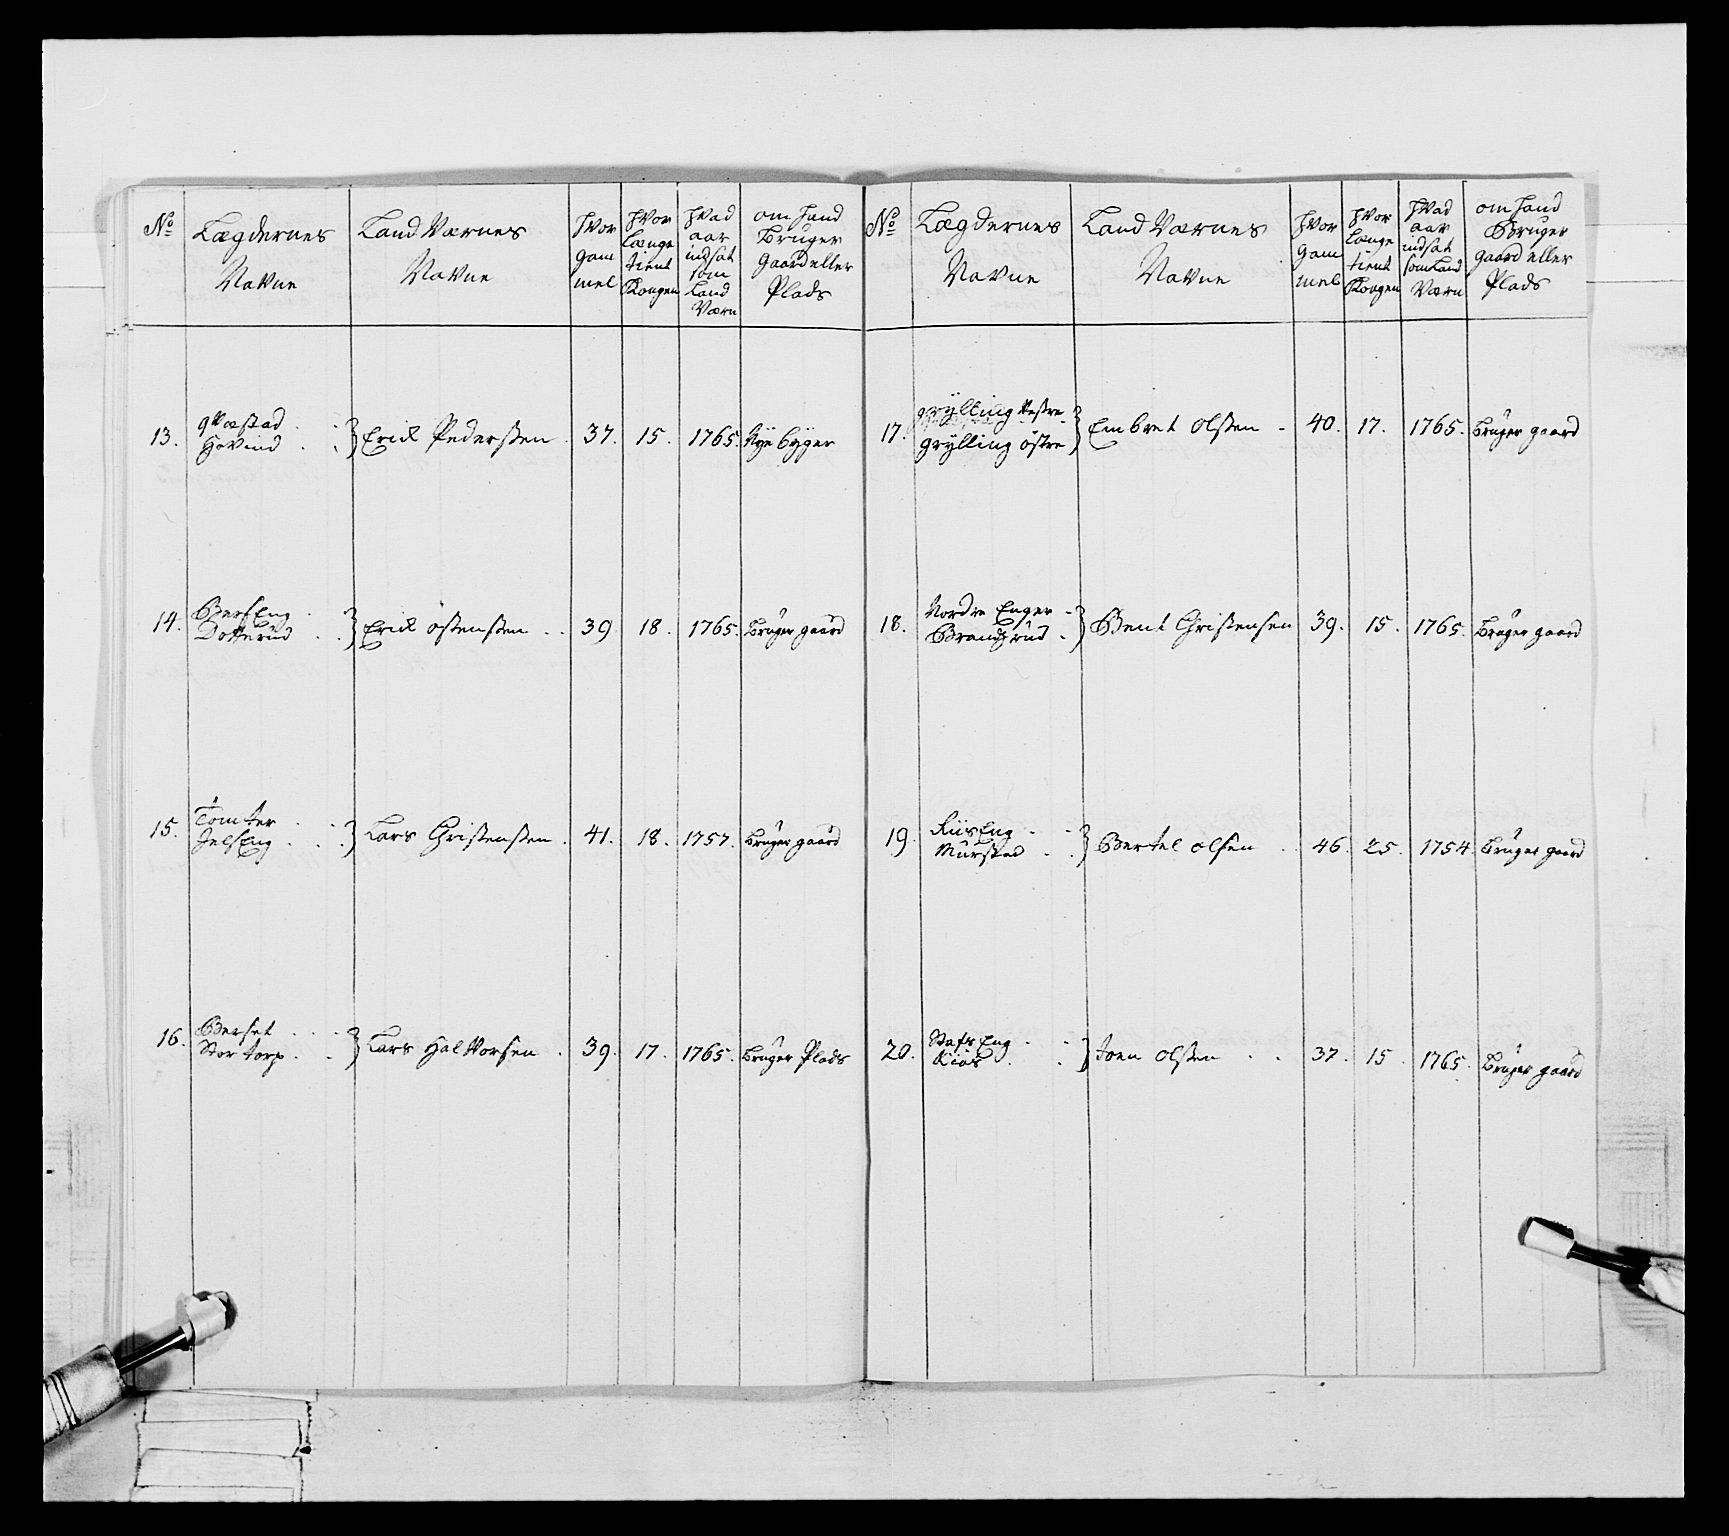 No
Lægdernes
Navne
Land Værnes
Navne
hvor
gam
mel
hvor
længe
tient
Kongen
hvad
aar
indsat
som
Land
Værn
om hand
Bruger
gaard eller
Plads
13.
qvæstad
Hovind
Erick Pedersten
37.
15.
1765.
Nye bÿger
14.
BersEng
Dotterud
Erick östensten
39
18.
1765.
Bruger gaard
15.
Tomter
JelsEng
Lars Christensten
41.
18.
1757.
Bruger gaard
16.
Berset
Stor torp
Lars Halvorsen
39.
17.
1765.
Bruger Plads
No
Lægdernes
Navne
Land Værnes
Navne
hvor
gam
mel
hvor
længe
tient
Kongen
hvad
aar
indsat
som Land
Værn
om hand
Bruger
gaard eller
Plads
17.
grÿlling Vestre
grÿlling östre
Embret Olsten
40.
17.
1765.
Bruger gaard
18.
Nordre Enger
Brandsrud
Bent Christensen
39.
15.
1765.
Bruger gaard
19
RiisEng
Murstad
Bertel olsen
46.
25.
1754.
Bruger gaard
20.
StafsEng
Kiös
Joen olsten
37.
15.
1765.
Bruger gaard